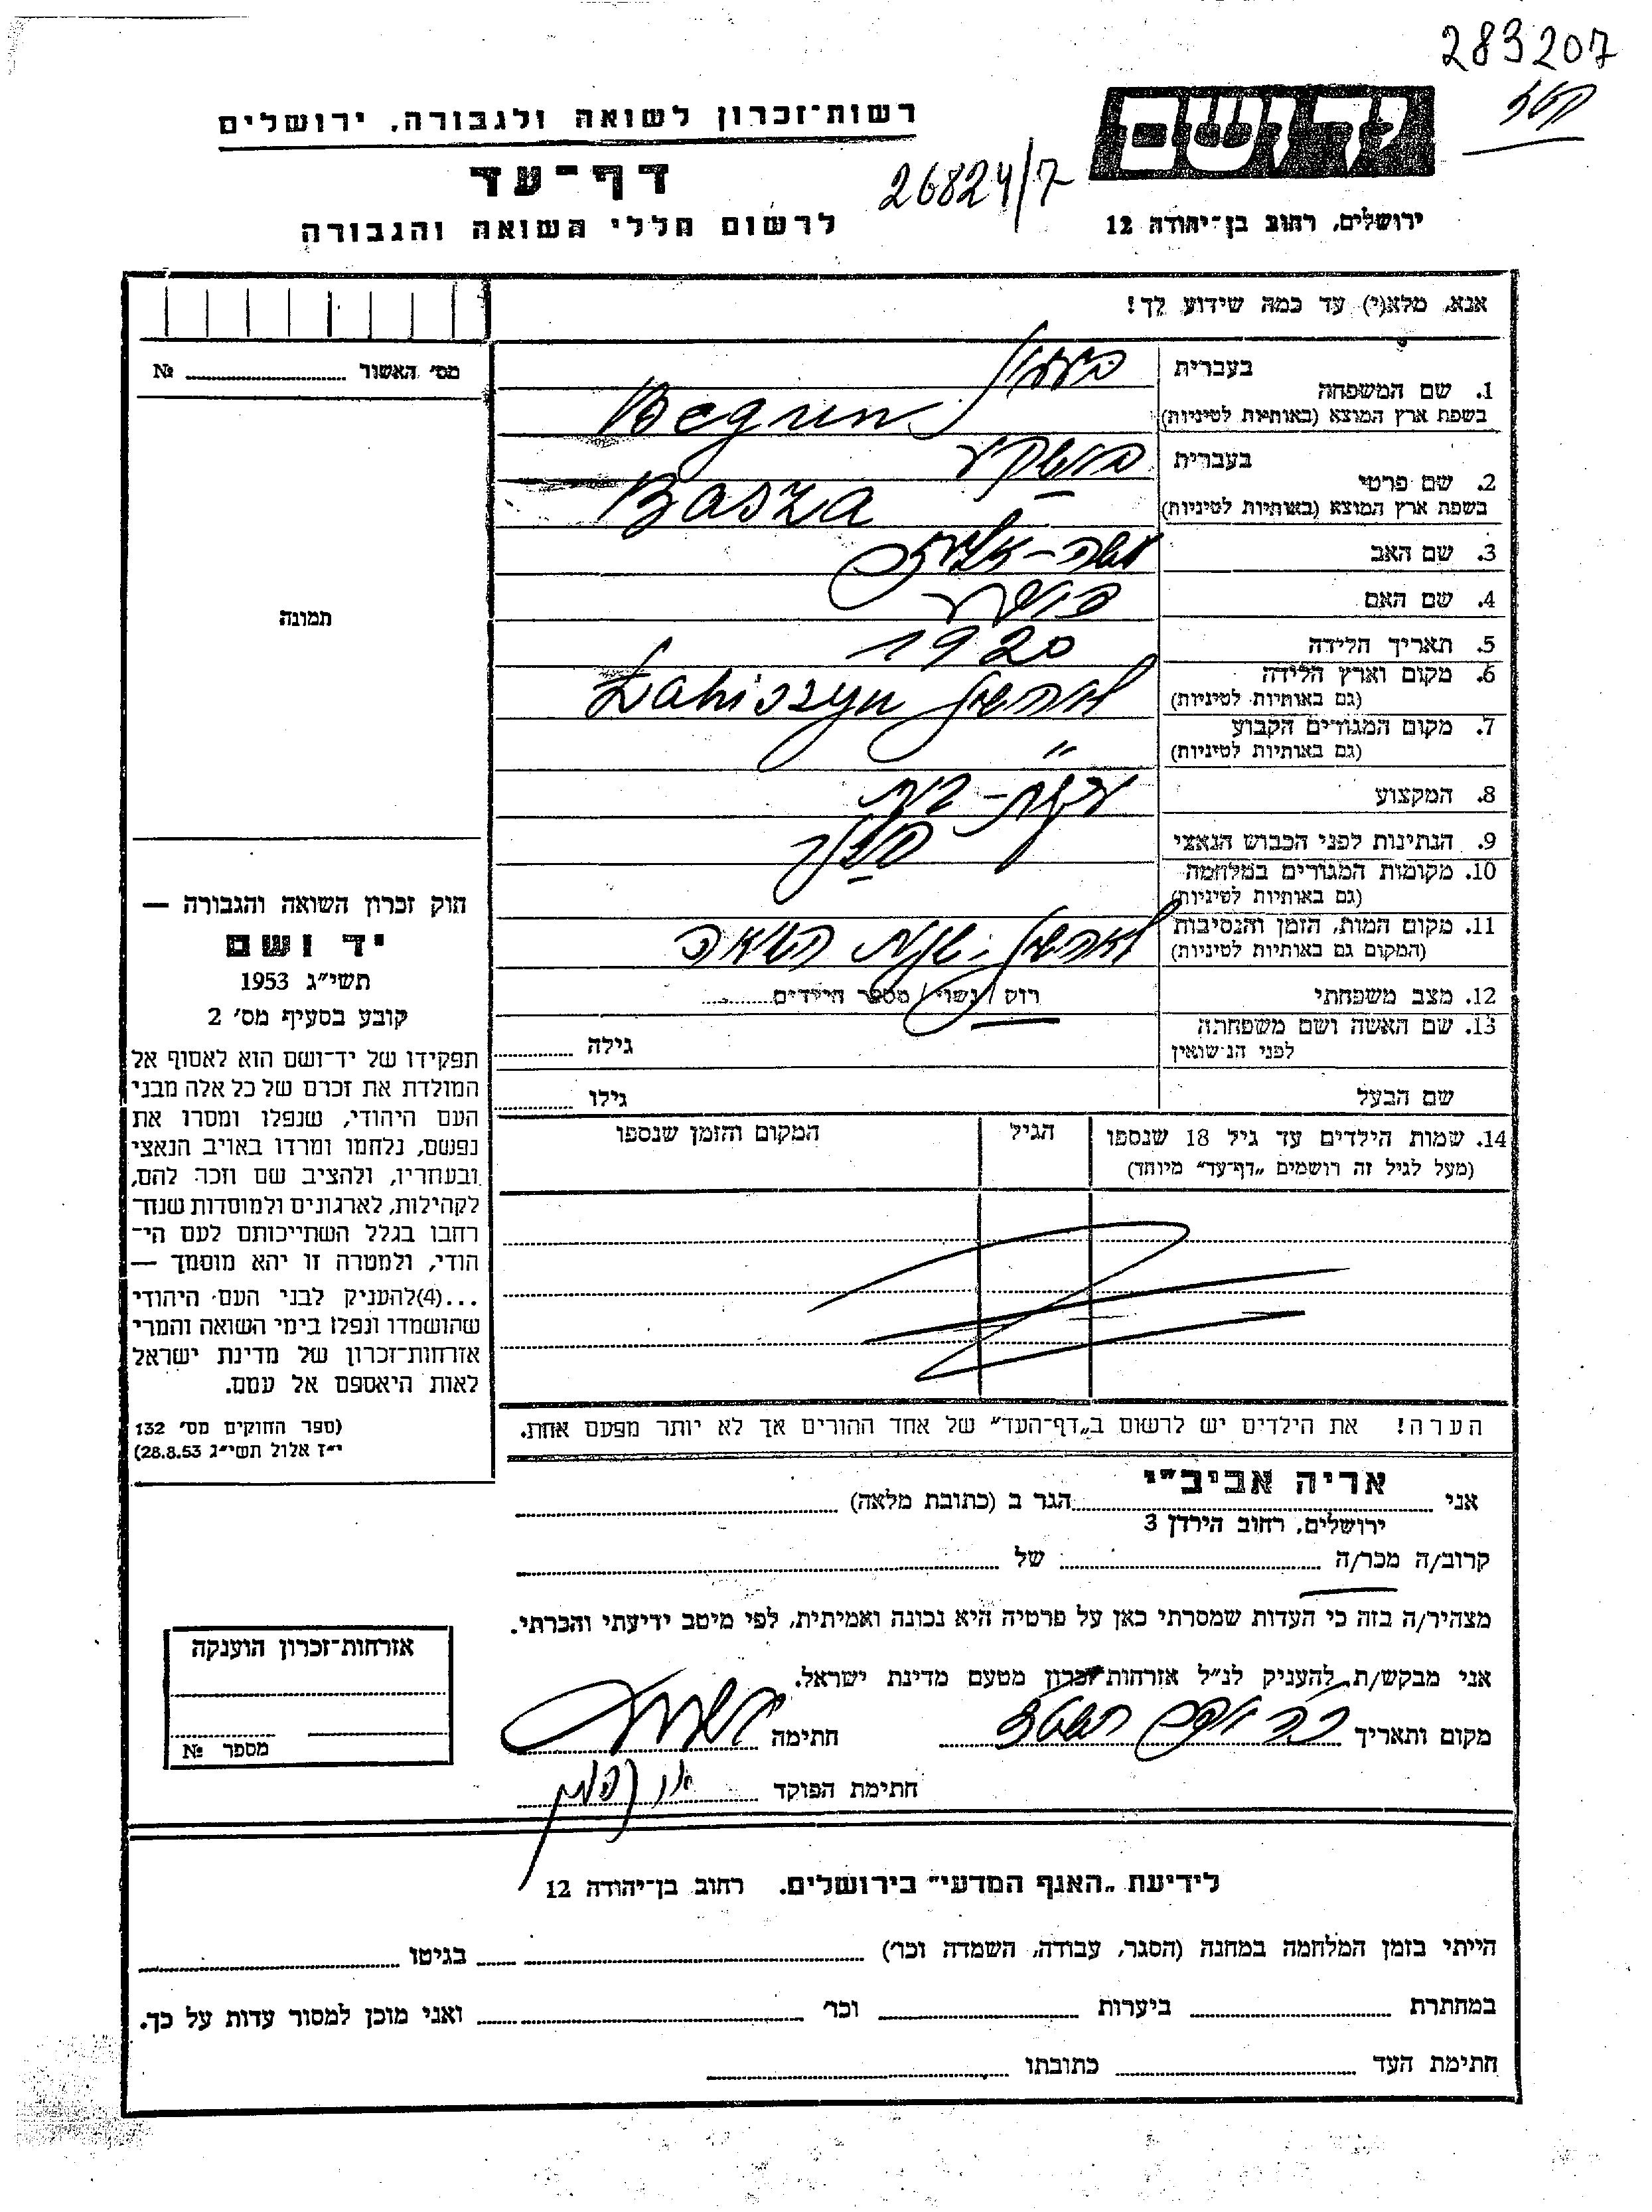 283207
רשות־זכרון לשואה ולגבורה, ירושלים
יד ושם
דף־עד
26824/7
לרשום חללי השואה והגבורה
ירושלים, רחוב בן־יהודה 12
אנא, מלא(י) עד כמה שידוע לך!
מס' האשור № 
תמונה
1. שם המשפחה
בעברית
בשפת ארץ המוצא (באותיות לטיניות) Begun
2. שם פרטי
בעברית
בשפת ארץ המוצא (באותיות לטיניות) Basza
3. שם האב
4. שם האם
5. תאריך הלידה 1920
6. מקום וארץ הלידה
(גם באותיות לטיניות) Łahiszyn
7. מקום המגורים הקבוע "
(גם באותיות לטיניות)
8. המקצוע
9. הנתינות לפני הכבוש הנאצי
10. מקומות המגורים במלחמה
(גם באותיות לטיניות)
11. מקום המות, הזמן והנסיבות
(המקום גם באותיות לטיניות)
12. מצב משפחתי רוק / נשוי / מספר הילדים
13. שם האשה ושם משפחתה
לפני הנישואין גילה
שם הבעל גילו
14. שמות הילדים עד גיל 18 שנספו
(מעל לגיל זה רושמים „דף־עד" מיוחד)
הגיל
המקום והזמן שנספו
חוק זכרון השואה והגבורה —
יד ושם
תשי"ג 1953
קובע בסעיף מס' 2
תפקידו של יד־ושם הוא לאסוף אל
המולדת את זכרם של כל אלה מבני
העם היהודי, שנפלו ומסרו את
נפשם, נלחמו ומרדו באויב הנאצי
ובעוזריו, ולהציב שם וזכר להם,
לקהילות, לארגונים ולמוסדות שנח־
רבו בגלל השתייכותם לעם הי־
הודי, ולמטרה זו יהא מוסמך —
...(4)להעניק לבני העם היהודי
שהושמדו ונפלו בימי השואה והמרי
אזרחות־זכרון של מדינת ישראל
לאות היאספם אל עמם.
(ספר החוקים מס' 132
י"ז אלול תשי"ג 28.8.53)
הערה! את הילדים יש לרשום ב„דף־העד" של אחד ההורים אך לא יותר מפעם אחת.
אני אריה אביב"י הגר ב (כתובת מלאה)
ירושלים, רחוב הירדן 3
קרוב/ה מכר/ה של
מצהיר/ה בזה כי העדות שמסרתי כאן על פרטיה היא נכונה ואמיתית, לפי מיטב ידיעתי והכרתי.
אני מבקש/ת להעניק לנ"ל אזרחות־זכרון מטעם מדינת ישראל.
מקום ותאריך חתימה
חתימת הפוקד
אזרחות־זכרון הוענקה
מספר №
לידיעת „האגף המדעי" בירושלים. רחוב בן־יהודה 12
הייתי בזמן המלחמה במחנה (הסגר, עבודה, השמדה וכו') בגיטו
במחתרת ביערות וכו' ואני מוכן למסור עדות על כך.
חתימת העד כתובתו